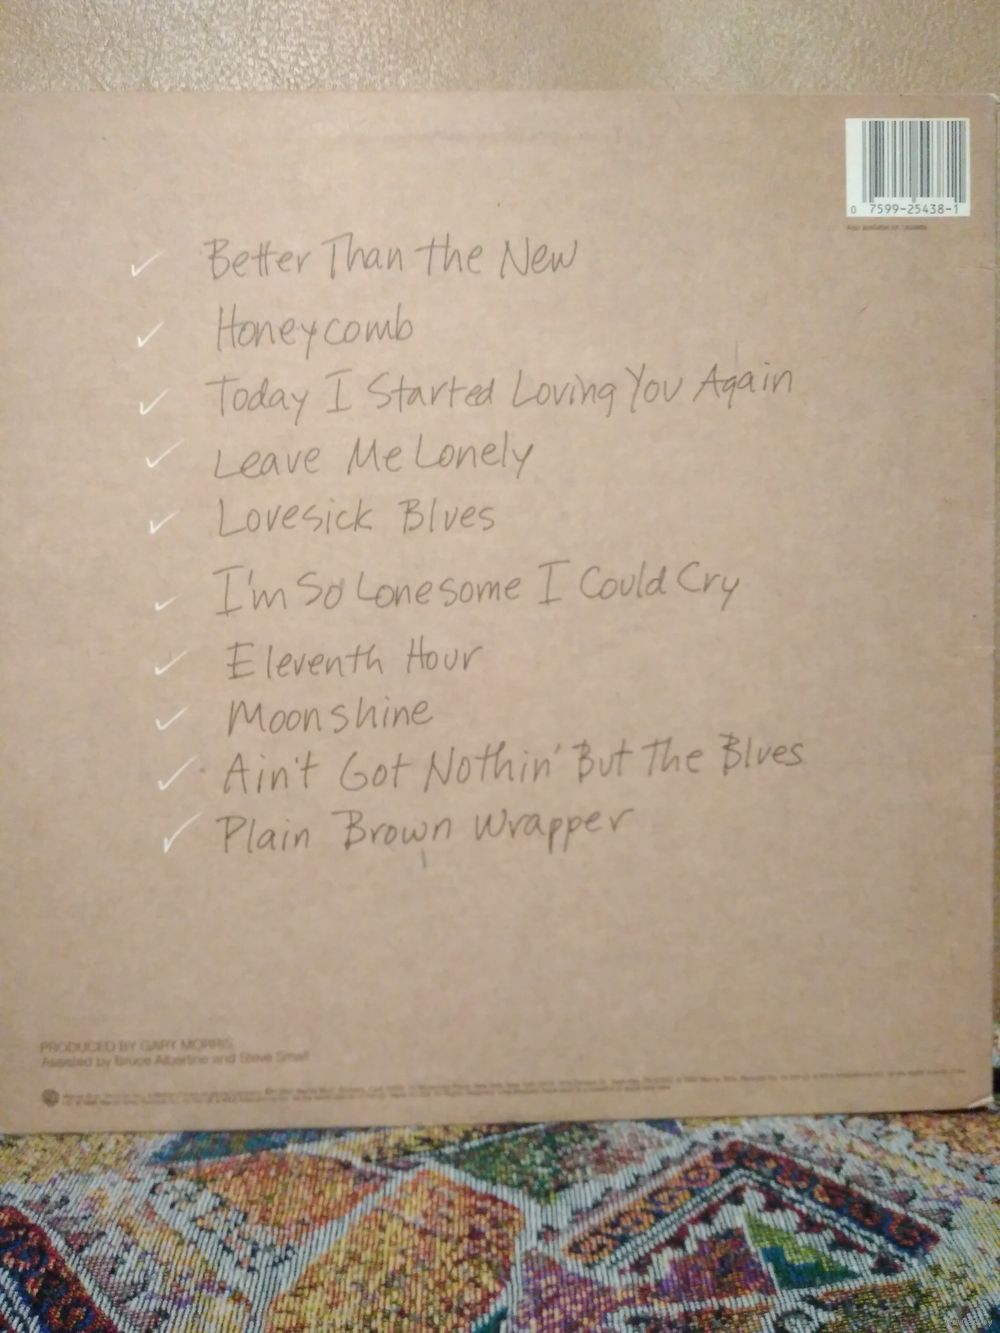 0 7599-25438-1
Also available on cassette
Better Than the New
Honeycomb
Today I Started Loving You Again
Leave Me Lonely
Lovesick Blues
I'm So Lonesome I Could Cry
Eleventh Hour
Moonshine
Ain't Got Nothin' But The Blues
Plain Brown Wrapper
PRODUCED BY GARY MORRIS
Assisted by Bruce Albertine and Steve Small